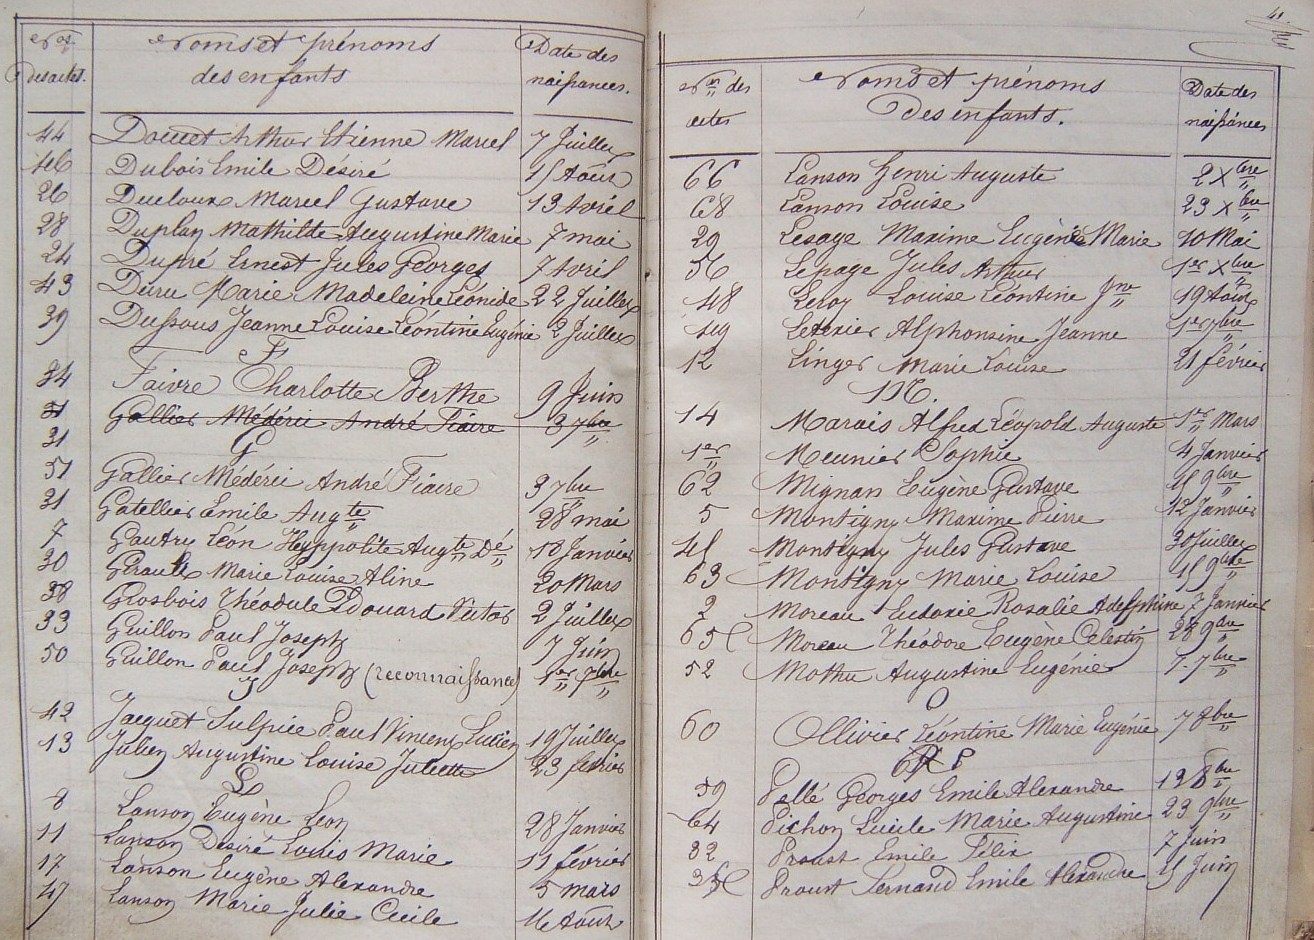 Nos des actes. Noms et prénoms des enfants Date des naissances.
44 Douet Arthur Etienne Marcel 7 Juillet
46 Dubois Emile Désiré 15 Août
26 Ducloux Marcel Gustave 13 Avril
28 Duplan Mathilde Augustine Marie 7 mai
24 Dupré Ernest Jules Georges 7 Avril
43 Duru Marie Madeleine Léonide 22 Juillet
39 Dussous Jeanne Louise Léontine Eugénie 2 Juillet
F
34 Faivre Charlotte Berthe 9 Juin
51 Gallier Médéric André Fiacre 3 7bre
31
G
51 Gallier Médéric André Fiacre 3 7bre
31 Gatellier Emile Augte 28 mai
7 Gautry Léon Hyppolite Augte Dé 18 Janvier
30 Girault Marie Louise Aline 20 Mars
38 Grosbois Théodule Edouard Victor 2 Juillet
33 Guillon Paul Joseph 7 Juin
50 Guillon Paul Joseph (reconnaissance) 1er 7bre
J
42 Jacquet Sulpice Paul Vincent Lucien 19 Juillet
13 Julien Augustine Louise Juliette 23 février
L
8 Lanson Eugène Léon 28 Janvier
11 Lanson Désiré Louis Marie 11 février
17 Lanson Eugène Alexandre 5 mars
47 Lanson Marie Julie Cécile 16 Août
41
Nos des actes Noms et prénoms Des enfants. Date des naissances
66 Lanson Henri Auguste 2 Xbre
68 Lanson Louise 23 Xbre
29 Lesage Maxime Eugénie Marie 10 Mai
56 Lepage Jules Arthur 1er Xbre
48 Leroy Louise Léontine Jne 19 Août
49 Leterier Alphonsine Jeanne 1er 7bre
12 Linger Marie Louise 21 février
M.
14 Marais Alfred Léopold Auguste 1er Mars
1er Meunier Sophie 4 Janvier
62 Mignan Eugène Gustave 15 9bre
5 Montigny Maxime Pierre 12 Janvier
45 Montigny Jules Gustave 30 Juillet
63 Montigny Marie Louise 15 9bre
2 Moreau Eudoxie Rosalie Adelphine 7 Janvier
65 Moreau Théodore Eugène Célestin 28 9bre
52 Mothu Augustine Eugénie 7 7bre
O
60 Ollivier Léontine Marie Eugénie 7 8bre
P
59 Pellé Georges Emile Alexandre 12 8bre
64 Pichon Lucile Marie Augustine 23 9bre
32 Proust Emile Félix 7 Juin
35 Proust Fernand Emile Alexandre 15 Juin